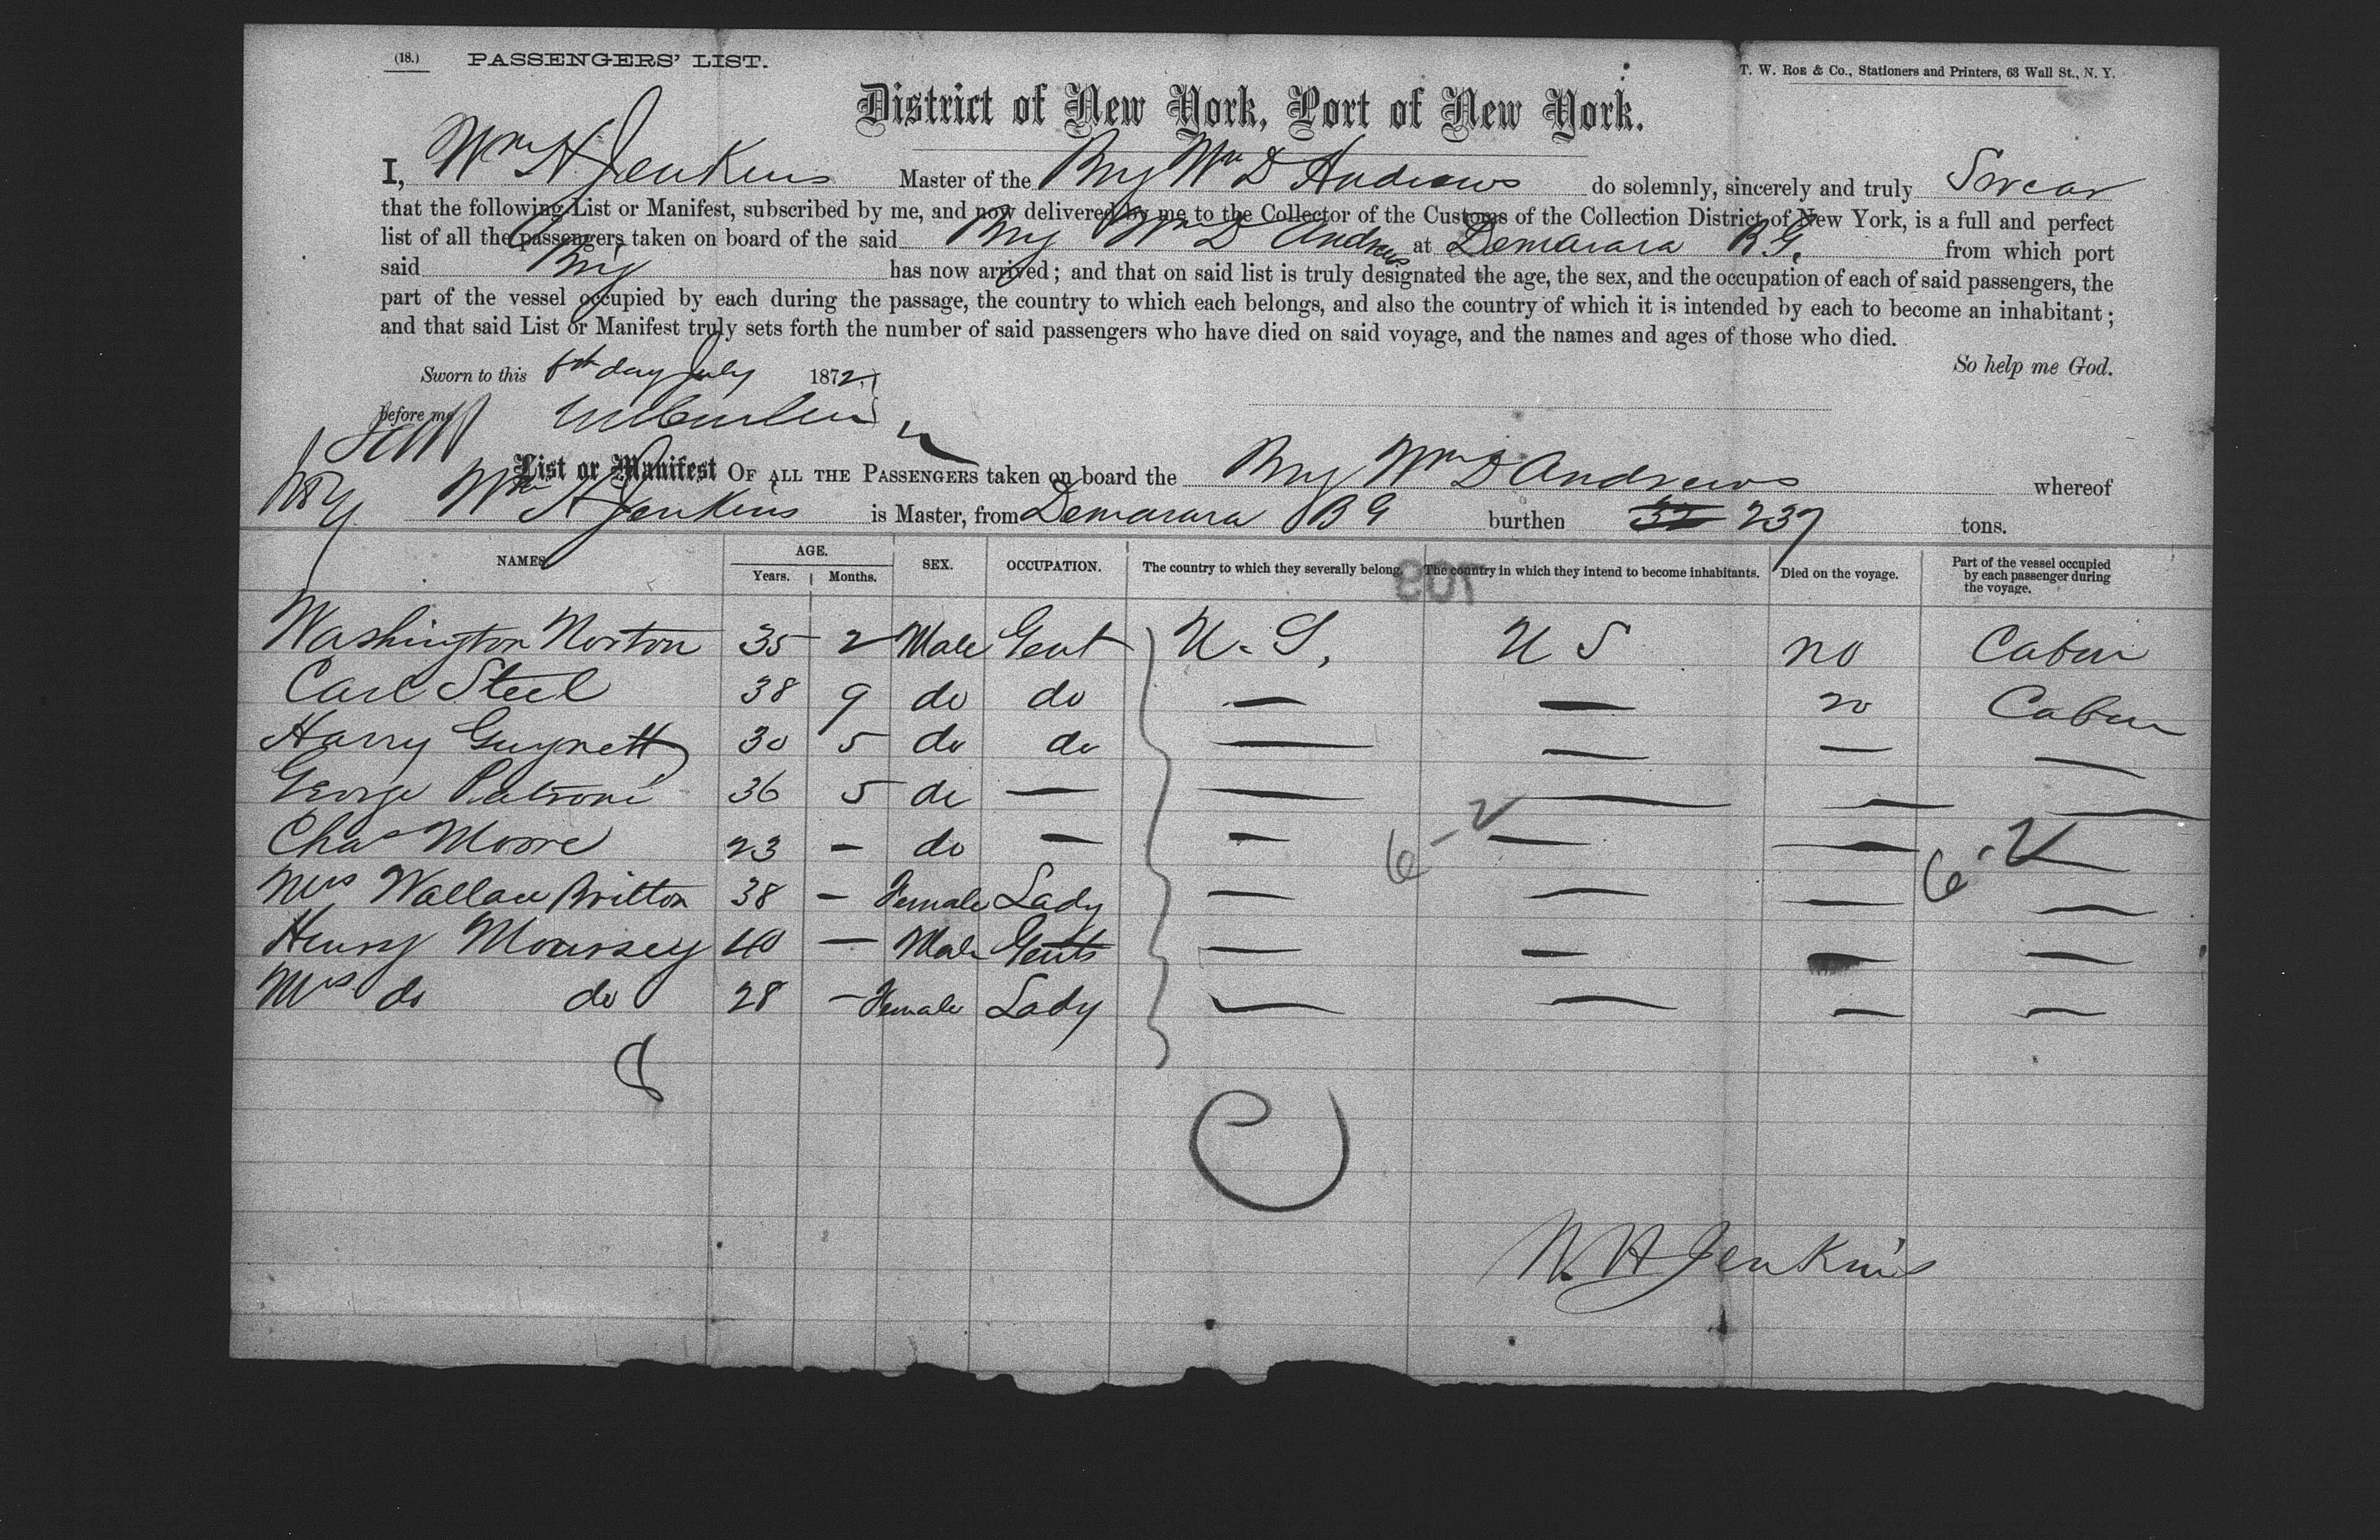 (18.) PASSENGERS' LIST.
T. W. Roe & Co., Stationers and Printers, 63 Wall St., N. Y.
District of New York, Port of New York.
I, Wm H Jenkins Master of the Brig Wm D Andrews do solemnly, sincerely and truly Swear
that the following List or Manifest, subscribed by me, and now delivered by me to the Collector of the Customs of the Collection District of New York, is a full and perfect
list of all the passengers taken on board of the said Brig Wm D Andrews at Demarara B.G. from which port
said Brig has now arrived; and that on said list is truly designated the age, the sex, and the occupation of each of said passengers, the
part of the vessel occupied by each during the passage, the country to which each belongs, and also the country of which it is intended by each to become an inhabitant;
and that said List or Manifest truly sets forth the number of said passengers who have died on said voyage, and the names and ages of those who died.
So help me God.
Sworn to this day July 1872
before me
List or Manifest OF ALL THE PASSENGERS taken on board the Brig Wm D Andrews whereof
Wm H Jenkins is Master, from Demarara B G burthen 237 tons.
NAMES. AGE. Years. Months. SEX. OCCUPATION. The country to which they severally belong. The country in which they intend to become inhabitants. Died on the voyage. Part of the vessel occupied by each passenger during the voyage.
Washington Norton 35 2 Male Gent U. S. U S no Cabin
Carl Steel 38 9 do do — — no Cabin
Harry Guynett 30 5 do do — — — —
George 36 5 do — — — — —
Chas Moore 23 — do — — — — —
Mrs Wallace Britton 38 — Female Lady — — — —
Henry Moursey 40 — Male Gents — — — —
Mrs do do 28 — Female Lady — — — —
8
W. H Jenkins